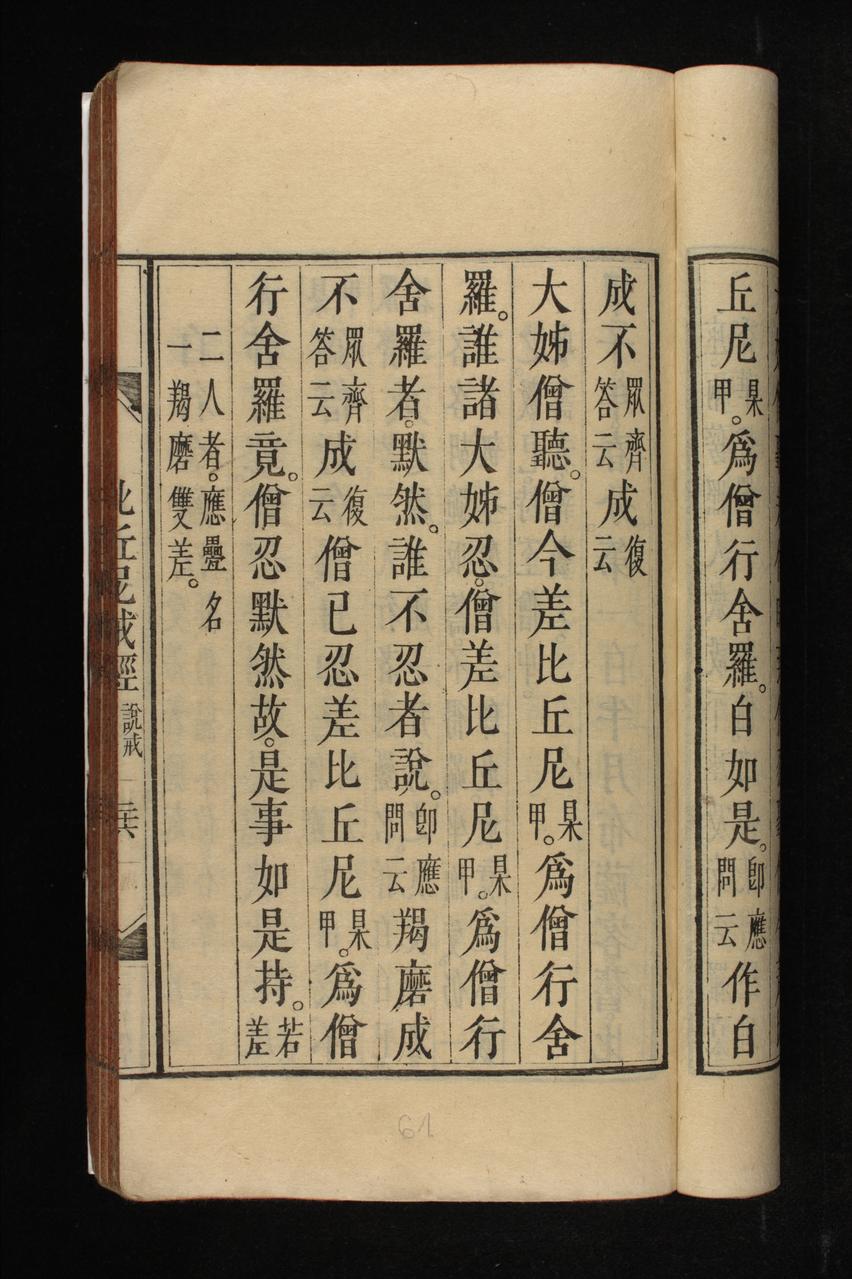 丘尼某甲。爲僧行舍羅。白如是。卽應問云作白
成不眾齊答云成復云
大姊僧聽。僧今差比丘尼某甲。爲僧行舍
羅。誰諸大姊忍。僧差比丘尼某甲。爲僧行
舍羅者。默然。誰不忍者說。卽應問云羯磨成
不眾齊答云成復云僧已忍差比丘尼某甲。爲僧
行舍羅竟。僧忍默然故。是事如是持。若差
二人者。應疊名
一羯磨雙差。
比丘尼戒經 說戒
61